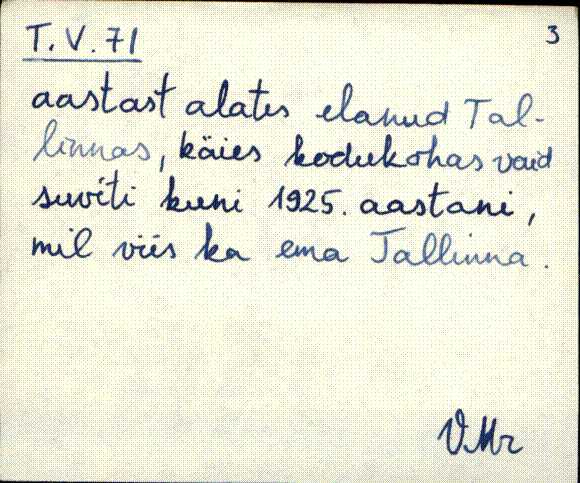 T. V. 71
3
aastast alates elanud Tal-
linnas, käies kodukohas vaid
suviti kuni 1925. aastani,
mil viis ka ema Tallinna.
VMr